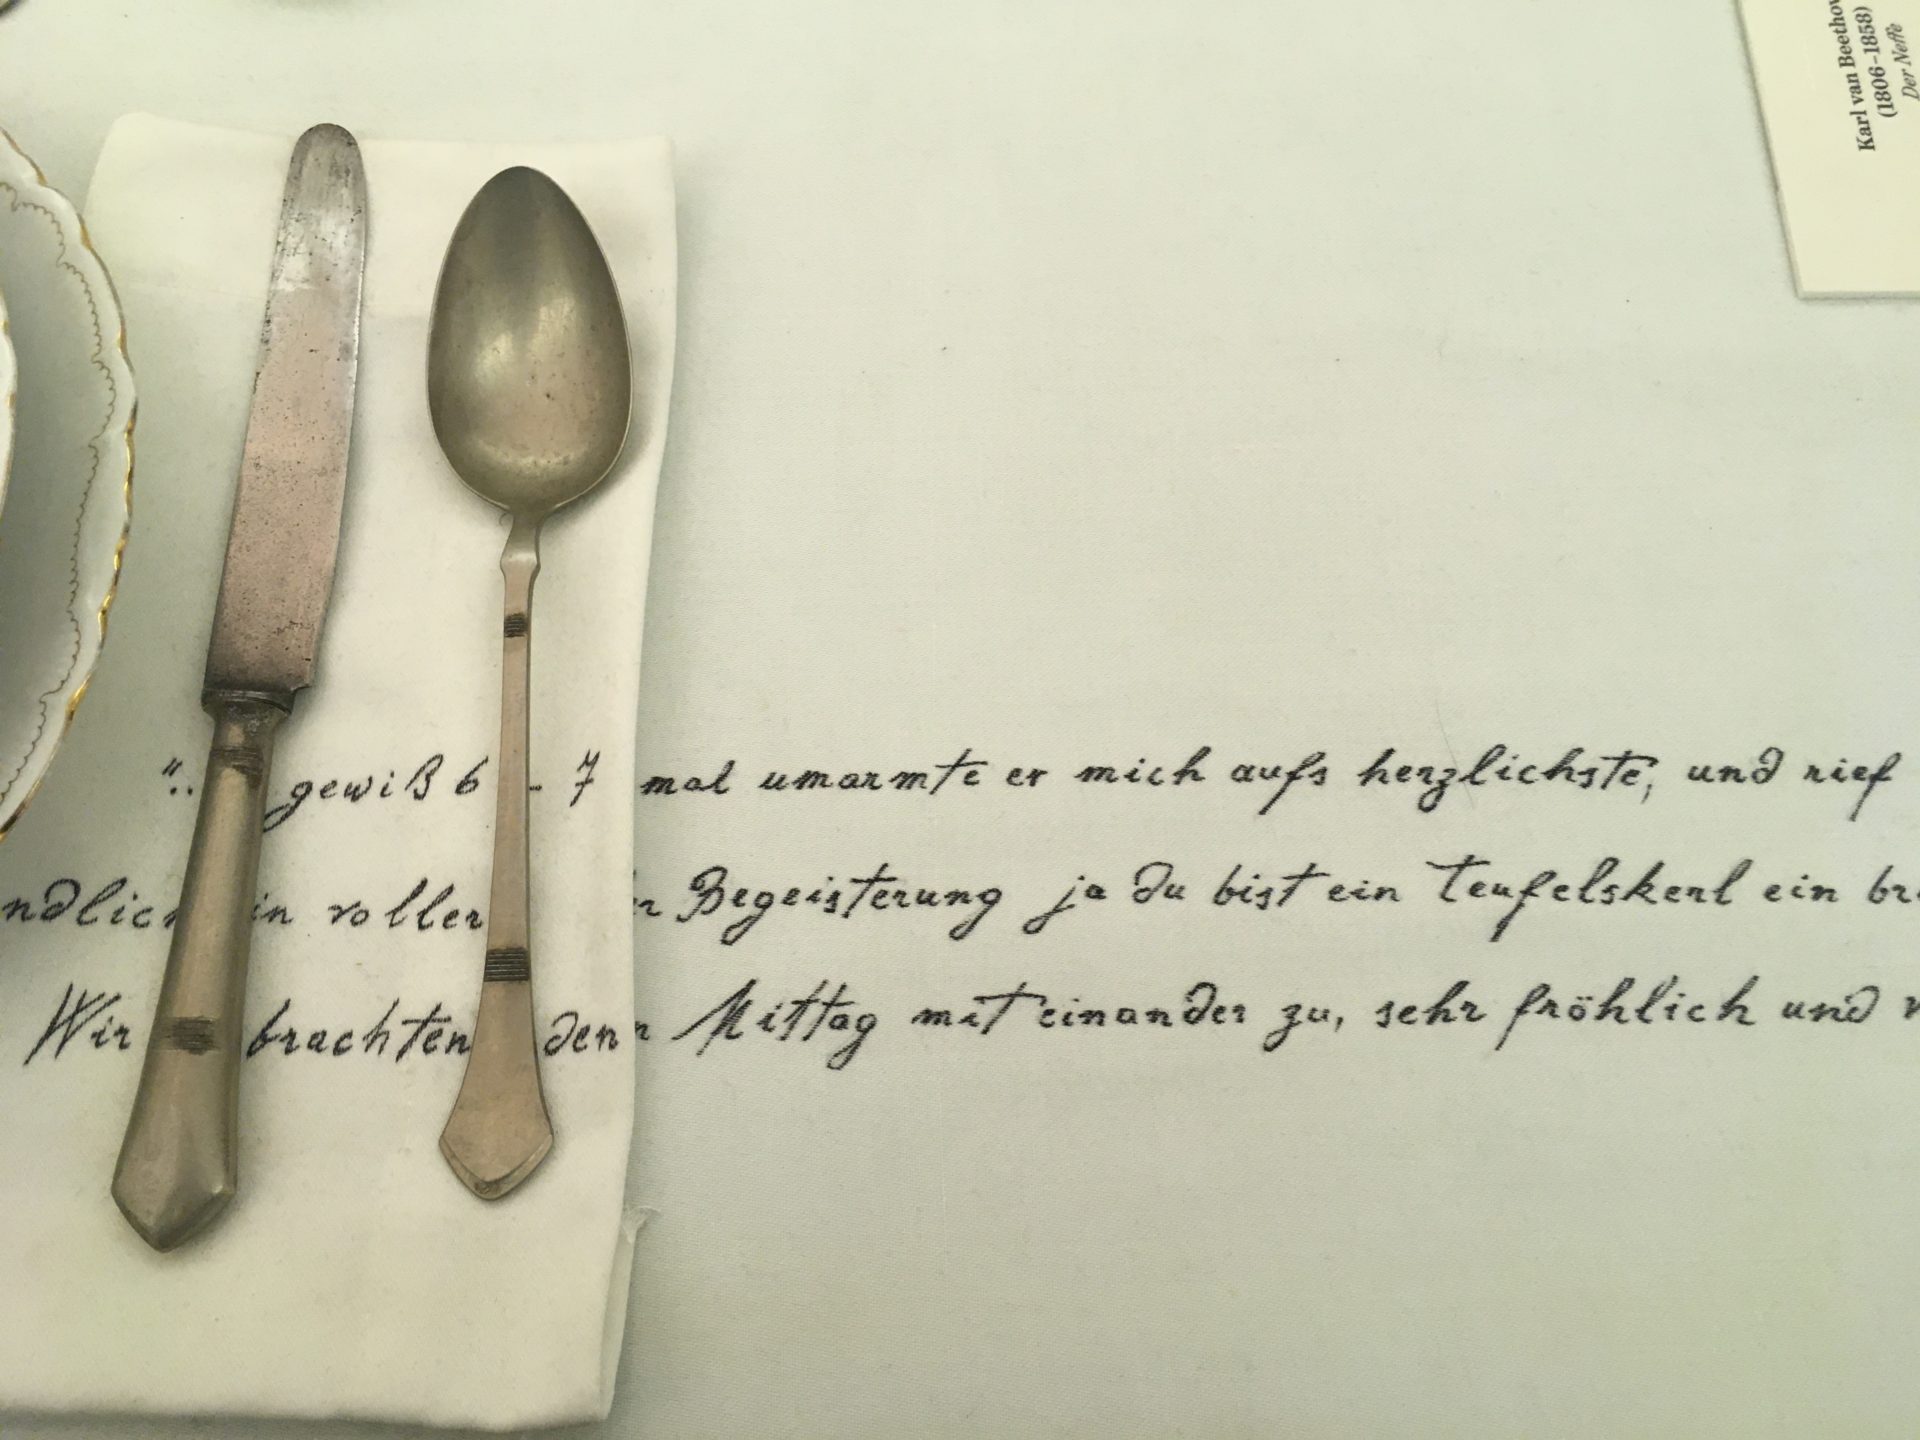 ".. gewiß 6 - 7 mal umarmte er mich aufs herzlichste, und rief
in voller Begeisterung ja du bist ein Teufelskerl ein
Wir brachten denn Mittag mit einander zu, sehr fröhlich und
Karl van Beethov
(1806-1858)
Der Neffe